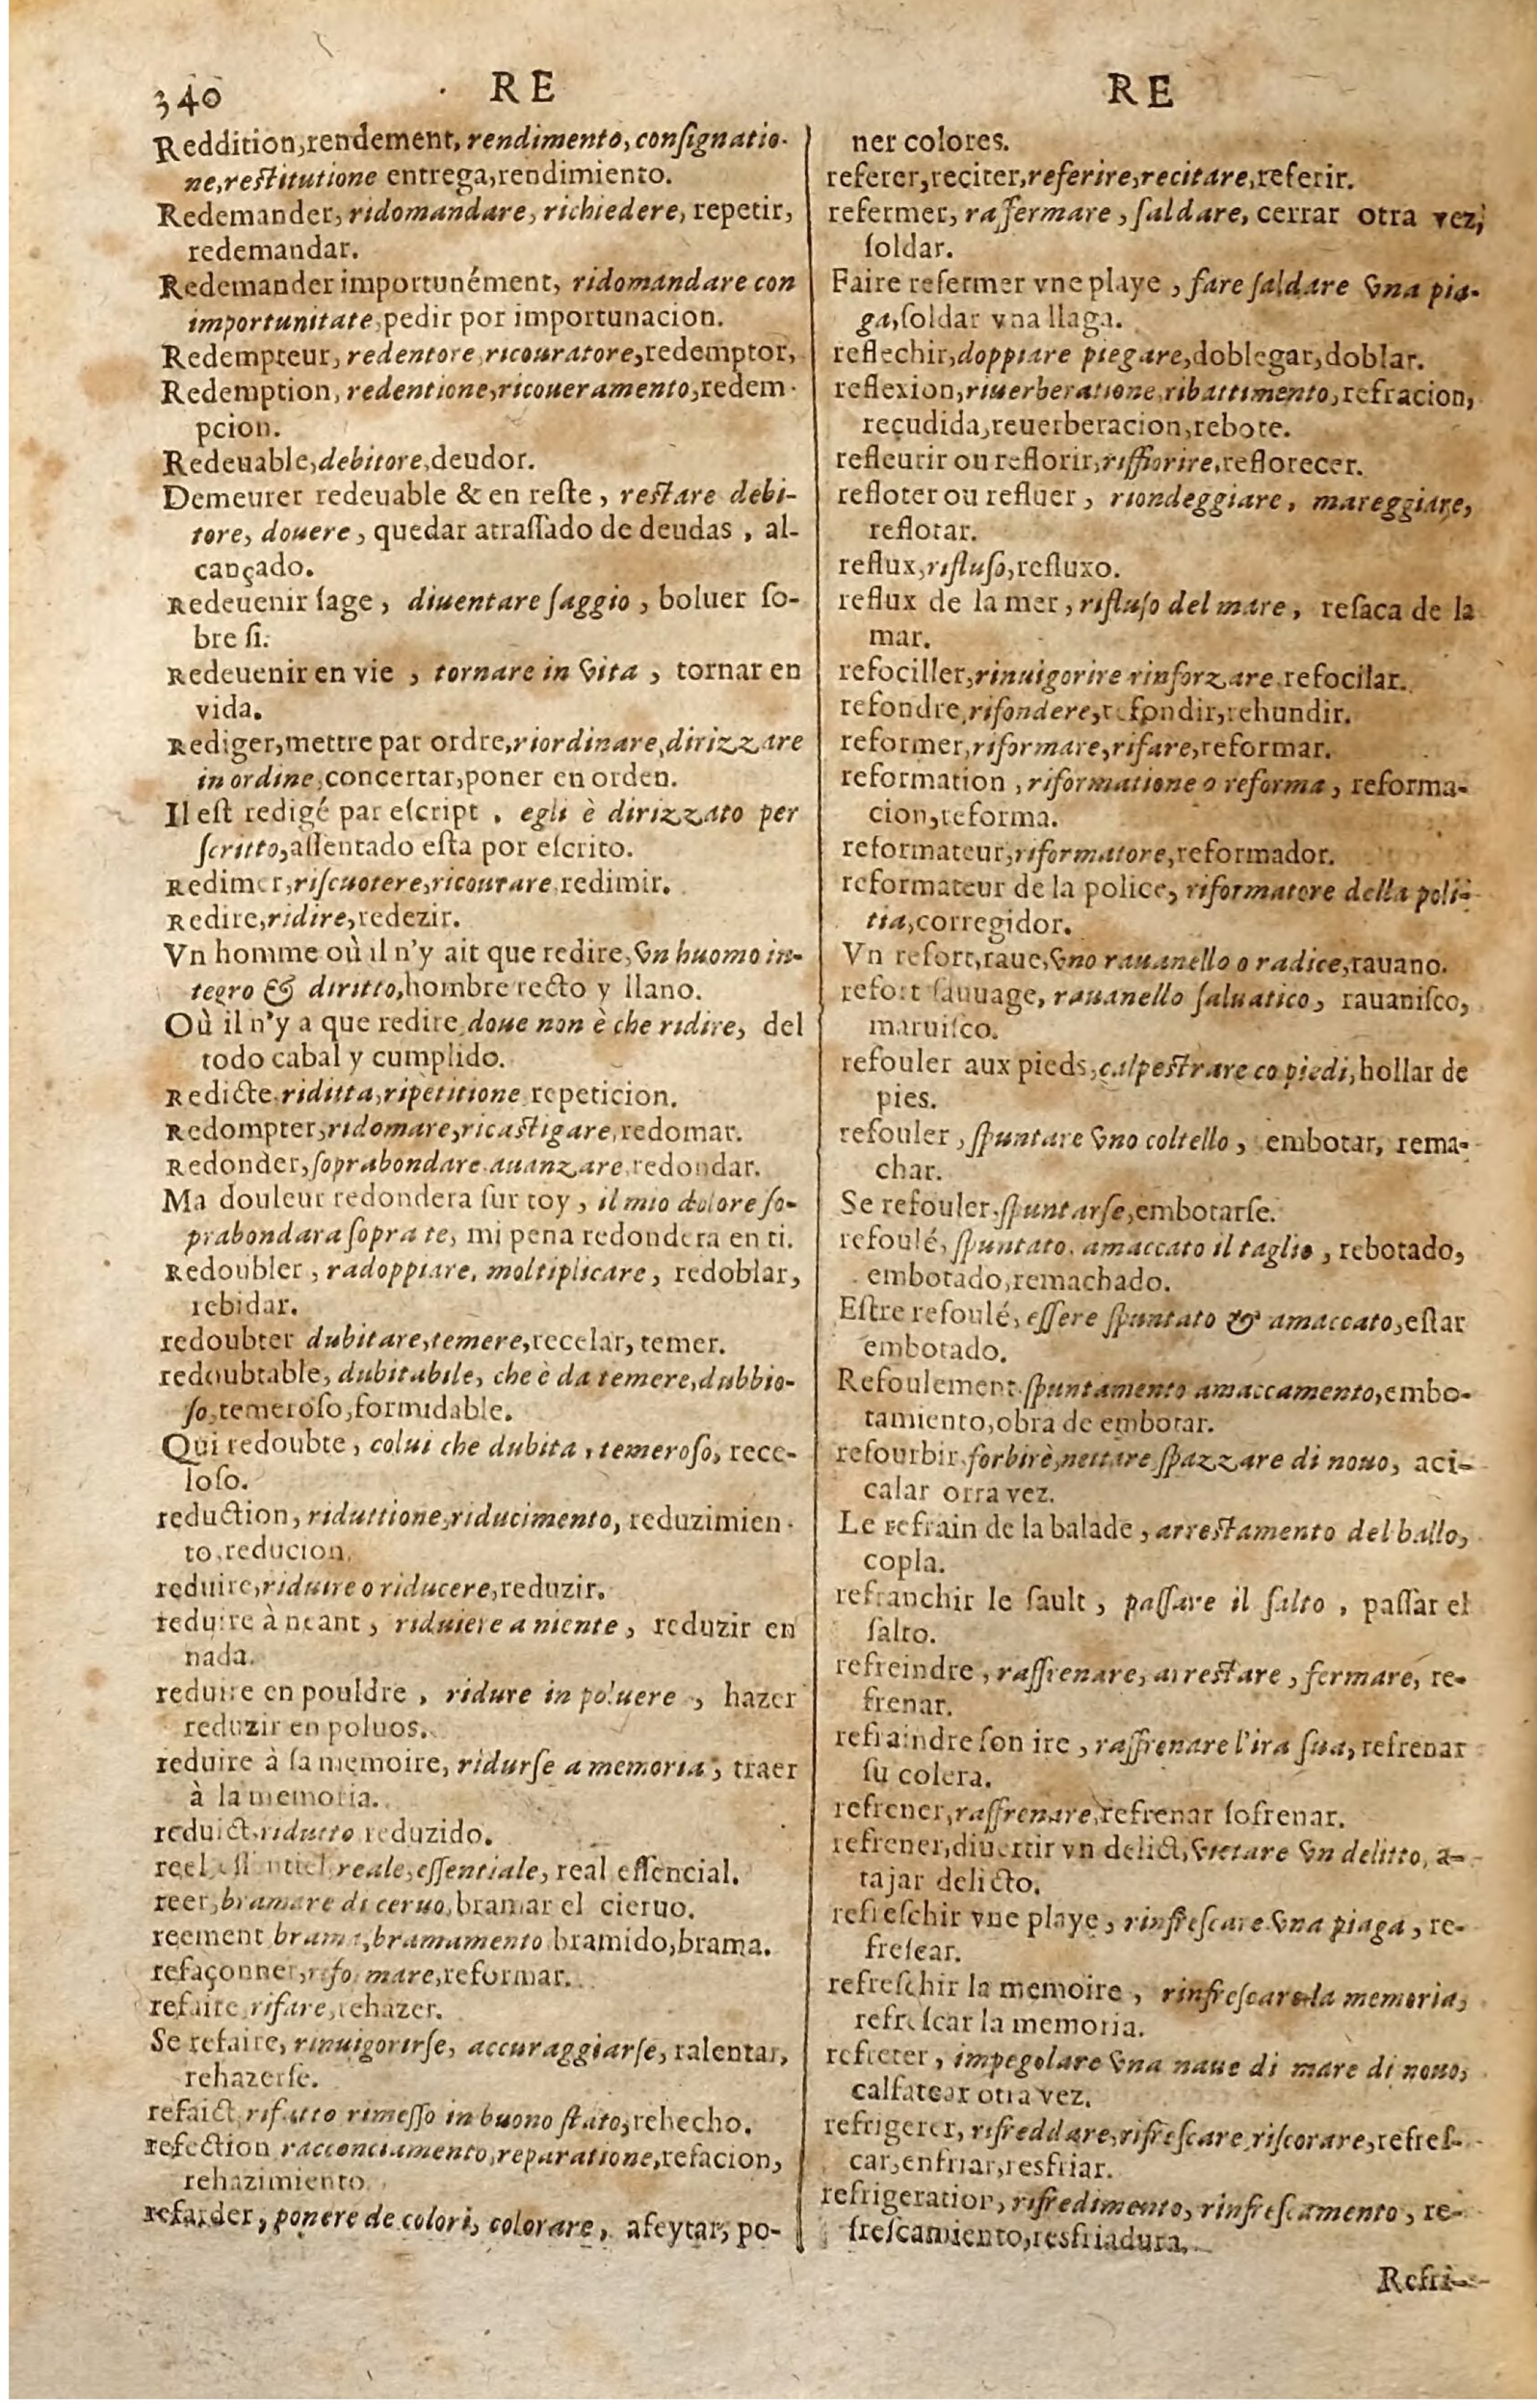 340 RE RE
Reddition,rendement, rendimento, conſignatio-
ne,reſtitutione entrega,rendimiento.
Redemander, ridomandare, richiedere, repetir,
redemandar.
Redemander importunément, ridomandare con
importunitate,pedir por importunacion.
Redempteur, redentore,ricouratore,redemptor,
Redemption, redentione,ricoueramento,redem-
pcion.
Redeuable,debitore,deudor.
Demeurer redeuable & en reſte, reſtare debi-
tore, douere, quedar atraſſado de deudas, al-
cançado.
Redeuenir ſage, diuentare ſaggio, boluer ſo-
bre ſi.
Redeuenir en vie, tornare in vita, tornar en
vida.
Rediger,mettre par ordre,riordinare,dirizzare
in ordine,concertar,poner en orden.
Il eſt redigé par eſcript, egli è dirizzato per
ſcritto,aſſentado eſta por eſcrito.
Redimer,riſcuotere,ricourare,redimir.
Redire,ridire,redezir.
Vn homme où il n'y ait que redire, vn huomo in-
tegro & diritto,hombre recto y llano.
Où il n'y a que redire,doue non è che ridire, del
todo cabal y cumplido.
Redicte,riditta,ripetitione,repeticion.
Redompter,ridomare,ricaſtigare,redomar.
Redonder,ſoprabondare,auanzare,redondar.
Ma douleur redondera ſur toy, il mio dolore ſo-
prabondara ſopra te, mi pena redondera en ti.
Redoubler, radoppiare, moltiplicare, redoblar,
rebidar.
redoubter dubitare,temere,recelar, temer.
redoubtable, dubitabile, che è da temere,dubbio-
ſo,temeroſo,formidable.
Qui redoubte, colui che dubita, temeroſo, rece-
loſo.
reduction, riduttione,riducimento, reduzimien-
to,reducion.
reduire,ridurre o riducere,reduzir.
reduire à neant, ridurere a niente, reduzir en
nada.
reduire en pouldre, ridure in poluere, hazer
reduzir en poluos.
reduire à ſa memoire, ridurſe a memoria, traer
à la memoria.
reduict,ridutto reduzido.
reel,eſſentiel reale,eſſentiale, real eſſencial.
reer,bramare di ceruo,bramar el cieruo.
reement brama,bramamento bramido,brama.
refaçonner,rifo mare,reformar.
refaire rifare,rehazer.
Se refaire, rinuigorirſe, accuraggiarſe, ralentar,
rehazerſe.
refaict rifatto rimeſſo in buono ſtato,rehecho.
refection racconciamento,reparatione,refacion,
rehazimiento.
refarder, ponere de colori, colorare, afeytar, po-
ner colores.
referer,reciter,referire,recitare,referir.
refermer, raffermare, ſaldare, cerrar otra vez,
ſoldar.
Faire refermer vne playe, fare ſaldare vna pia-
ga,ſoldar vna llaga.
reflechir,doppiare piegare,doblegar,doblar.
reflexion,riuerberatione,ribattimento,refracion,
reçudida,reuerberacion,rebote.
refleurir ou reflorir,riffiorire,reflorecer.
refloter ou refluer, riondeggiare, mareggiare,
reflotar.
reflux,rifluſo,refluxo.
reflux de la mer, rifluſo del mare, reſaca de la
mar.
refociller,rinuigorire rinforzare refocilar.
refondre,rifondere,refondir,rehundir.
reformer,riformare,rifare,reformar.
reformation, riformatione o reforma, reforma-
cion,reforma.
reformateur,riformatore,reformador.
reformateur de la police, riformatore della poli-
tia,corregidor.
Vn refort,raue,vno rauanello o radice,rauano.
refort ſauuage, rauanello ſaluatico, rauaniſco,
maruiſco.
refouler aux pieds,calpeſtrare co piedi,hollar de
pies.
refouler, ſpuntare vno coltello, embotar, rema-
char.
Se refouler,ſpuntarſe,embotarſe.
refoulé, ſpuntato, amaccato il taglio, rebotado,
embotado,remachado.
Eſtre refoulé, eſſere ſpuntato & amaccato,eſtar
embotado.
Refoulement,ſpuntamento amaccamento,embo-
tamiento,obra de embotar.
refourbir,forbirè,nettare,ſpazzare di nouo, aci-
calar otra vez.
Le refrain de la balade, arreſtamento del ballo,
copla.
refranchir le ſault, paſſare il ſalto, paſſar el
ſalto.
refreindre, raffrenare, arreſtare, fermare, re-
frenar.
refraindre ſon ire, raffrenare l'ira ſua, refrenar
ſu colera.
refrener,raffrenare,refrenar ſofrenar.
refrener,diuertir vn delict, vietare vn delitto, a-
tajar delicto.
refreſchir vne playe, rinfreſcare vna piaga, re-
freſcar.
refreſchir la memoire, rinfreſcare la memoria,
refreſcar la memoria.
refreter, impegolare vna naue di mare di nouo,
calfatear otra vez.
refrigerer, rifreddare,rifreſcare,riſcorare,refreſ-
car,enfriar,resfriar.
refrigeration, rifredimento, rinfreſcamento, re-
freſcamiento,resfriadura.
Refri-